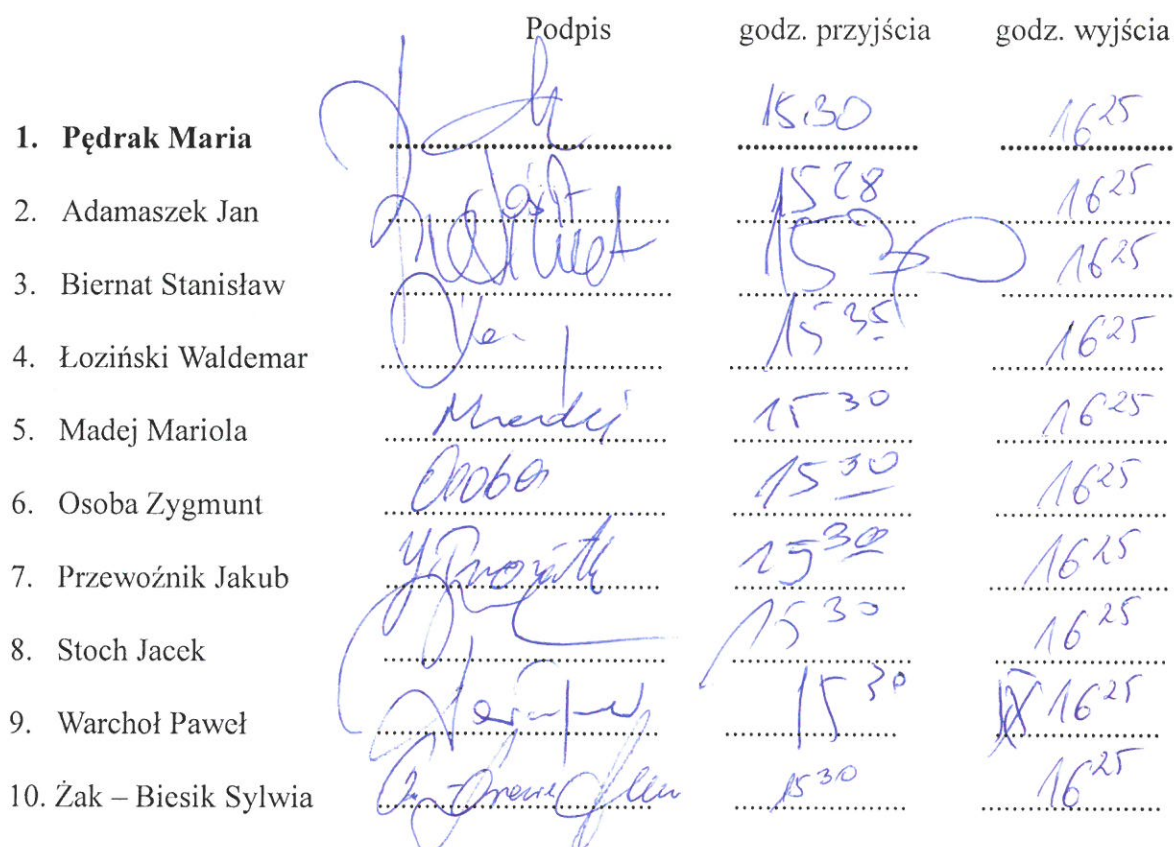 Podpis godz. przyjścia godz. wyjścia
1. Pędrak Maria 15.30 16 25
2. Adamaszek Jan 15 28 16 25
3. Biernat Stanisław 15 30 16 25
4. Łoziński Waldemar 15 35 16 25
5. Madej Mariola Madej 15 30 16 25
6. Osoba Zygmunt Osoba 15 30 16 25
7. Przewoźnik Jakub 15 30 16 25
8. Stoch Jacek 15 30 16 25
9. Warchoł Paweł 15 30 16 25
10. Żak – Biesik Sylwia 15 30 16 25